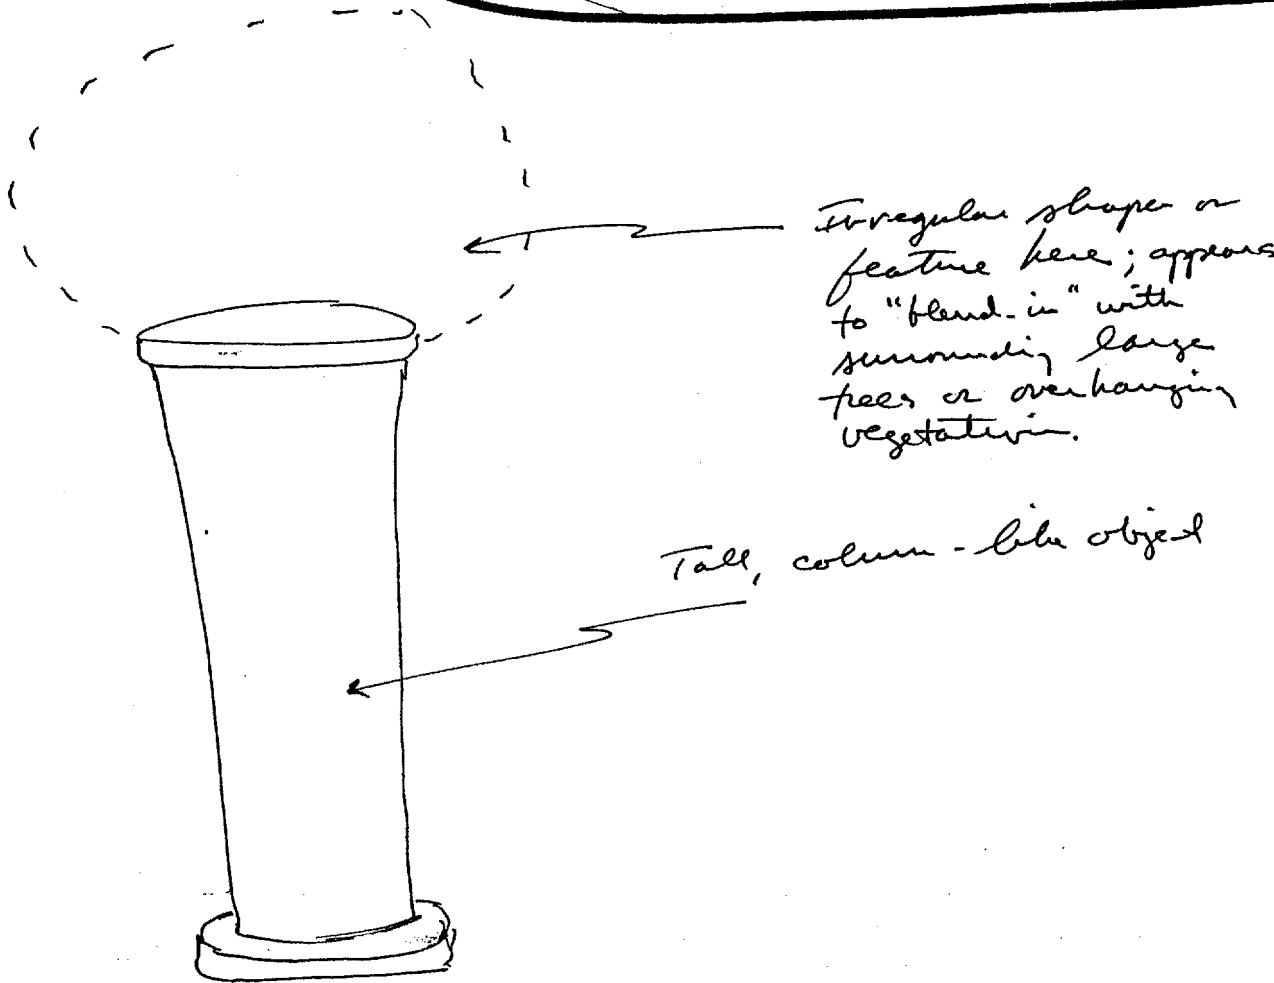 Irregular shape or
feature here; appears
to "blend-in" with
surrounding large
trees or overhanging
vegetation.
Tall, column-like object